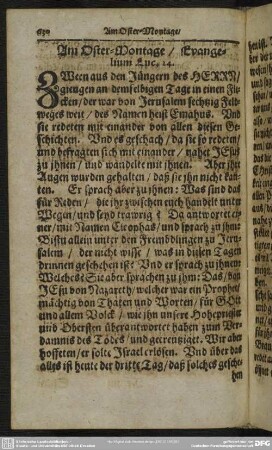 Am Oster-Montage/
Am Oster-Montage / Evange-
lium Luc. 14.
ZWeen aus den Jüngern des HERRN/
giengen an demselbigen Tage in einen Fle-
cken/ der war von Jerusalem sechtzig Feld-
weges weit / des Namen heist Emahus. Und
sie redeten mit einander von allen diesen Ge-
schichten. Und es geschach / da sie so redeten
und befragten sich mit einander / nahet JEsus
zu ihnen / und wandelt mit ihnen. Aber ihre
Augen wurden gehalten / daß sie ihn nicht kan-
ten. Er sprach aber zu ihnen: Was sind das
für Reden / die ihr zwischen euch handelt unter
Wegen / und seyd trawrig? Da antwortet ei-
ner / mit Namen Cleophas / und sprach zu ihm:
Bistu allein unter den Frembdlingen zu Jeru-
salem / der nicht wisse / was in diesen Tagen
drinnen geschehen ist? Und er sprach zu ihnen:
Welches? Sie aber sprachen zu ihm: Das / von
JEsu von Nazareth / welcher war ein Prophet
mächtig von Thaten und Worten / für GOtt
und allem Volck / wie ihn unsere Hohepriester
und Obersten überantwortet haben zum Ver-
damnis des Todes / und gecreutziget. Wir aber
hoffeten / er solte Israel erlösen. Und über das
alles ist heute der dritte Tag / daß solches gesche-
hen